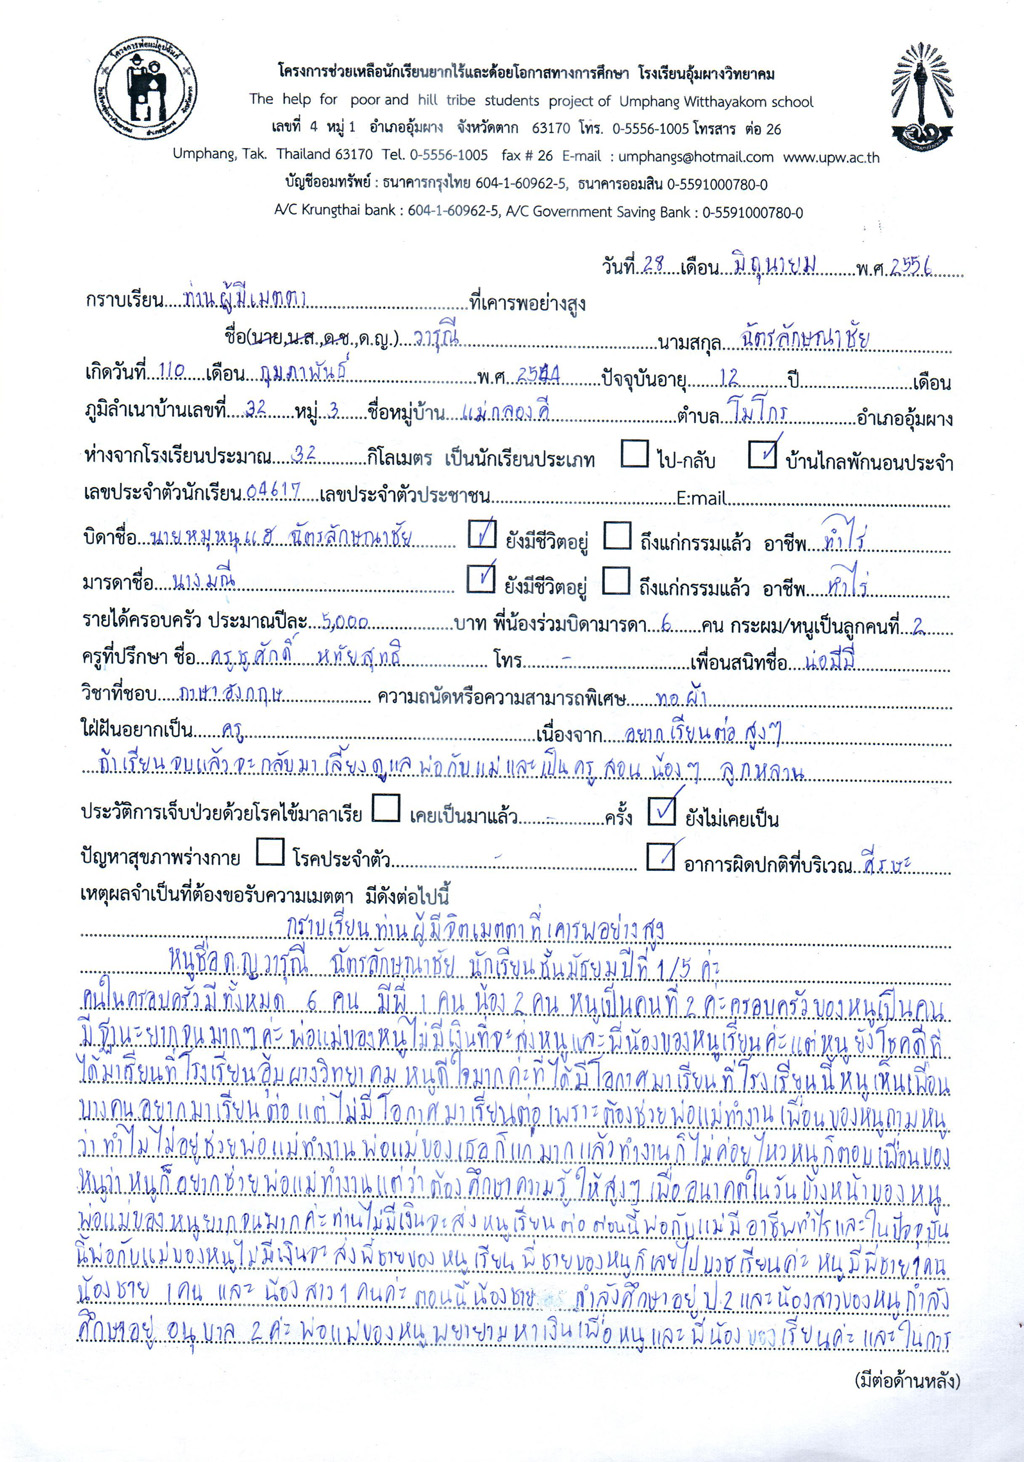 โครงการช่วยเหลือนักเรียนยากไร้และด้อยโอกาสทางการศึกษา โรงเรียนอุ้มผางวิทยาคม
The help for poor and hill tribe students project of Umphang Witthayakom school
เลขที่ 4 หมู่ 1 อำเภออุ้มผาง จังหวัดตาก 63170 โทร. 0-5556-1005 โทรสาร ต่อ 26
Umphang, Tak. Thailand 63170 Tel. 0-5556-1005 fax # 26 E-mail : umphangs@hotmail.com www.upw.ac.th
บัญชีออมทรัพย์ : ธนาคารกรุงไทย 604-1-60962-5, ธนาคารออมสิน 0-5591000780-0
A/C Krungthai bank : 604-1-60962-5, A/C Government Saving Bank : 0-5591000780-0
วันที่ 28 เดือน มิถุนายม พ.ศ. 2556
กราบเรียน ท่านผู้มีเมตตา ที่เคารพอย่างสูง
ชื่อ(นาย,น.ส.,ด.ช.,ด.ญ.) วารุณี นามสกุล ฉัตรลักษณาชัย
เกิดวันที่ 110 เดือน กุมภาพันธ์ พ.ศ. 2544 ปัจจุบันอายุ 12 ปี เดือน
ภูมิลำเนาบ้านเลขที่ 32 หมู่ 3 ชื่อหมู่บ้าน แม่กลองคี ตำบล โมโกร อำเภออุ้มผาง
ห่างจากโรงเรียนประมาณ 32 กิโลเมตร เป็นนักเรียนประเภท ไป-กลับ ✓ บ้านไกลพักนอนประจำ
เลขประจำตัวนักเรียน 04617 เลขประจำตัวประชาชน E:mail
บิดาชื่อ นายหมุหนุแฮ ฉัตรลักษณาชัย ✓ ยังมีชีวิตอยู่ ถึงแก่กรรมแล้ว อาชีพ ทำไร่
มารดาชื่อ นางมณี ✓ ยังมีชีวิตอยู่ ถึงแก่กรรมแล้ว อาชีพ ทำไร่
รายได้ครอบครัว ประมาณปีละ 5,000 บาท พี่น้องร่วมบิดามารดา 6 คน กระผม/หนูเป็นลูกคนที่ 2
ครูที่ปรึกษา ชื่อ ครูชูศักดิ์ หทัยสุทธิ โทร - เพื่อนสนิทชื่อ น่อมีมี่
วิชาที่ชอบ ภาษาอังกฤษ ความถนัดหรือความสามารถพิเศษ ทอผ้า
ใฝ่ฝันอยากเป็น ครู เนื่องจาก อยากเรียนต่อสูงๆ
ถ้าเรียนจบแล้วจะกลับมาเลี้ยงดูแลพ่อกับแม่และเป็นครูสอนน้องๆ ลูกหลาน
ประวัติการเจ็บป่วยด้วยโรคไข้มาลาเรีย เคยเป็นมาแล้ว - ครั้ง ✓ ยังไม่เคยเป็น
ปัญหาสุขภาพร่างกาย โรคประจำตัว - ✓ อาการผิดปกติที่บริเวณ ศีรษะ
เหตุผลจำเป็นที่ต้องขอรับความเมตตา มีดังต่อไปนี้
กราบเรียนท่านผู้มีจิตเมตตาที่เคารพอย่างสูง
หนูชื่อ ด.ญ.วารุณี ฉัตรลักษณาชัย นักเรียนชั้นมัธยมปีที่ 1/5 ค่ะ
คนในครอบครัวมีทั้งหมด 6 คน มีพี่ 1 คน น้อง 2 คน หนูเป็นคนที่ 2 ค่ะครอบครัวของหนูเป็นคน
มีฐานะยากจนมากๆค่ะ พ่อแม่ของหนูไม่มีเงินที่จะส่งหนูและพี่น้องของหนูเรียนค่ะแต่หนูยังโชคดีที่
ได้มาเรียนที่โรงเรียนอุ้มผางวิทยาคม หนูดีใจมากค่ะที่ได้มีโอกาศมาเรียนที่โรงเรียนนี้ หนูเห็นเพื่อน
บางคนอยากมาเรียนต่อแต่ไม่มีโอกาศมาเรียนต่อเพราะต้องช่วยพ่อแม่ทำงาน เพื่อนของหนูถามหนู
ว่าทำไมไม่อยู่ช่วยพ่อแม่ทำงาน พ่อแม่ของเธอก็แก่มากแล้วทำงานก็ไม่ค่อยไหวหนูก็ตอบเพื่อนของ
หนูว่าหนูก็อยากช่วยพ่อแม่ทำงานแต่ว่าต้องศึกษาความรู้ให้สูงๆ เพื่ออนาคตในวันข้างหน้าของหนู
พ่อแม่ของหนูยากจนมากค่ะท่านไม่มีเงินจะส่งหนูเรียนต่อ ตอนนี้พ่อกับแม่มีอาชีพทำไร่และในปัจจุบัน
นี้พ่อกับแม่ของหนูไม่มีเงินจะส่งพี่ชายของหนูเรียน พี่ชายของหนูก็เลยไปบวชเรียนค่ะ หนูมีพี่ชาย 1 คน
น้องชาย 1 คน และน้องสาว 1 คนค่ะ ตอนนี้น้องชาย กำลังศึกษาอยู่ ป.2 และน้องสาวของหนูกำลัง
ศึกษาอยู่ อนุบาล 2 ค่ะ พ่อแม่ของหนูพยายามหาเงินเพื่อหนูและพี่น้องของเรียนค่ะ และในการ
(มีต่อด้านหลัง)